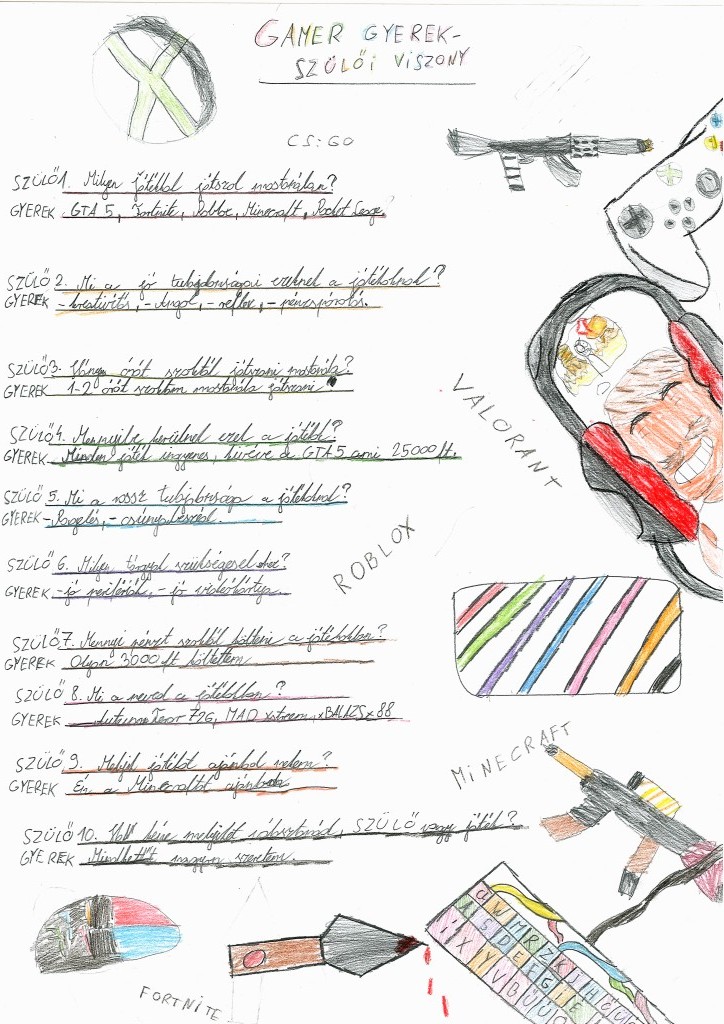 GAMER GYEREK-
SZÜLŐI VISZONY
CS:GO
SZÜLŐ 1. Milyen játékkal játszol mostanában?
GYEREK GTA 5, Fortnite, Roblox, Minecraft, Rocket League.
SZÜLŐ 2. Mi a jó tulajdonságai ezeknek a játékoknak?
GYEREK - kreativitás, - Angol, - reflex, - pénzspórolás.
SZÜLŐ 3. órát szoktál játszani mostanába?
GYEREK 1-2 órát szoktam mostanába játszani.
SZÜLŐ 4. Mennyibe kerülnek ezek a játékok?
GYEREK Minden játék ingyenes, kivéve a GTA 5 ami 25000 ft.
VALORANT
SZÜLŐ 5. Mi a rossz tulajdonsága a játékoknak?
GYEREK - Ragelés, - csúnya beszéd.
ROBLOX
SZÜLŐ 6. Milyen tárgyak szükségesek ehez?
GYEREK - jó perifériák, - jó videókártya.
SZÜLŐ 7. Mennyi pénzt szoktál költeni a játékokban?
GYEREK Olyan 3000 ft költöttem
SZÜLŐ 8. Mi a neved a játékokban?
GYEREK 726, MAD xBALAZSx88
MINECRAFT
SZÜLŐ 9. Melyik játékot ajánlod nekem?
GYEREK Én a Minecraftot
SZÜLŐ 10. Ha kéne melyiket választanád, SZÜLŐ vagy játék?
GYEREK Mindkettőt nagyon szeretem.
Q W M R Z K
A S D E F G
Y X Y V B Ü
FORTNITE